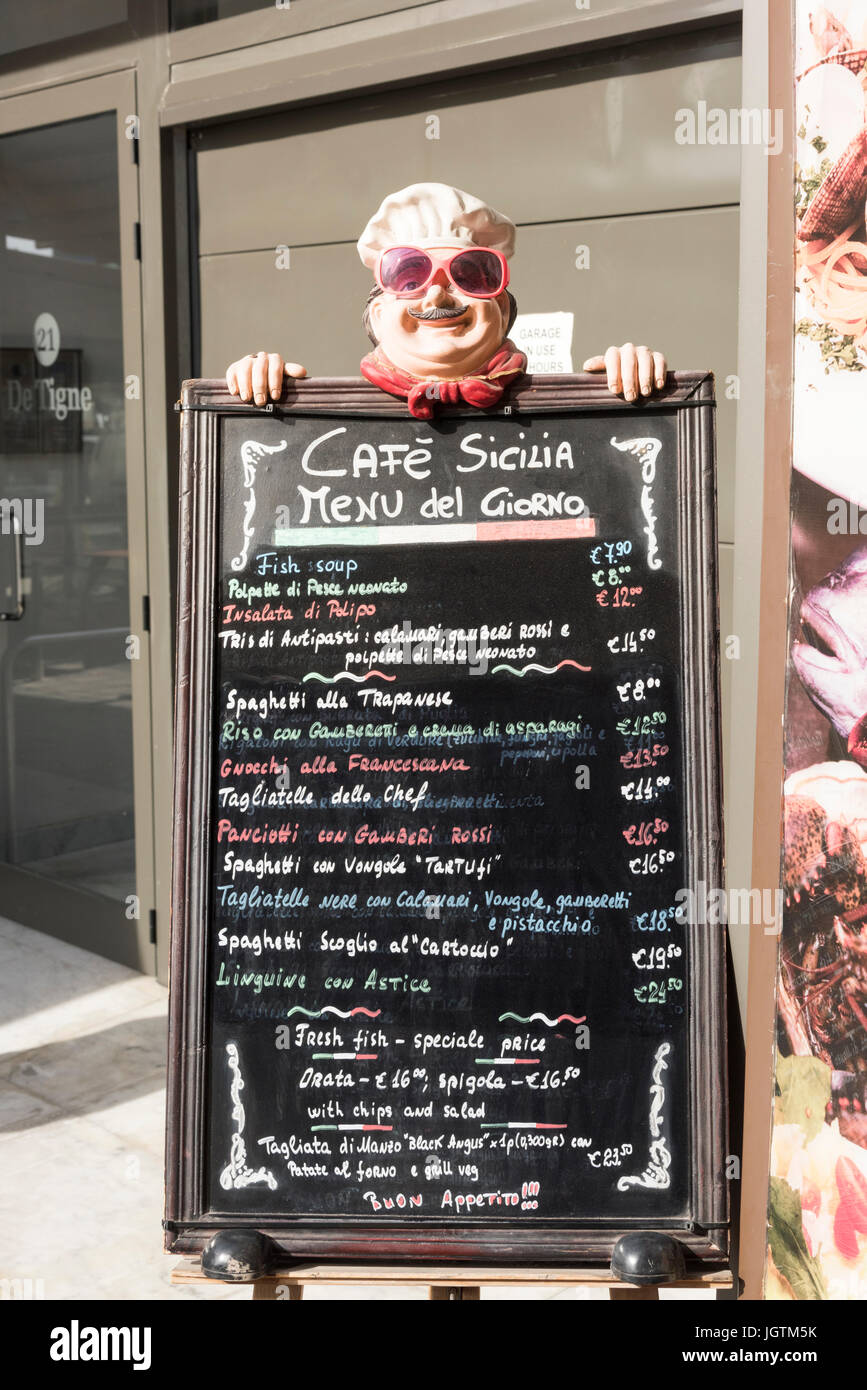 21
De Tigne
GARAGE
IN USE
HOURS
CAFÈ SICILIA
MENU del GIORNO
Fish soup €7.90
Polpette di Pesce neonato €8.00
Insalata di Polipo €12.00
Tris di Antipasti: calamari, gamberi rossi e
polpette di Pesce neonato €14.50
Spaghetti alla Trapanese €8.00
Riso con Gamberetti e crema di asparagi €12.50
Gnocchi alla Francescana €13.50
Tagliatelle dello Chef €14.00
Panciotti con Gamberi Rossi €16.50
Spaghetti con Vongole "Tartufi" €16.50
Tagliatelle nere con Calamari, Vongole, gamberetti
e pistacchio €18.50
Spaghetti Scoglio al "Cartoccio" €19.50
Linguine con Astice €24.50
Fresh fish - speciale price
Orata - €16.00, spigola - €16.50
with chips and salad
Tagliata di Manzo "Black Angus" x 1p (0,300gr) con
Patate al forno e grill veg €23.50
Buon Appetito!!!
alamy stock photo
JGTM5K
www.alamy.com